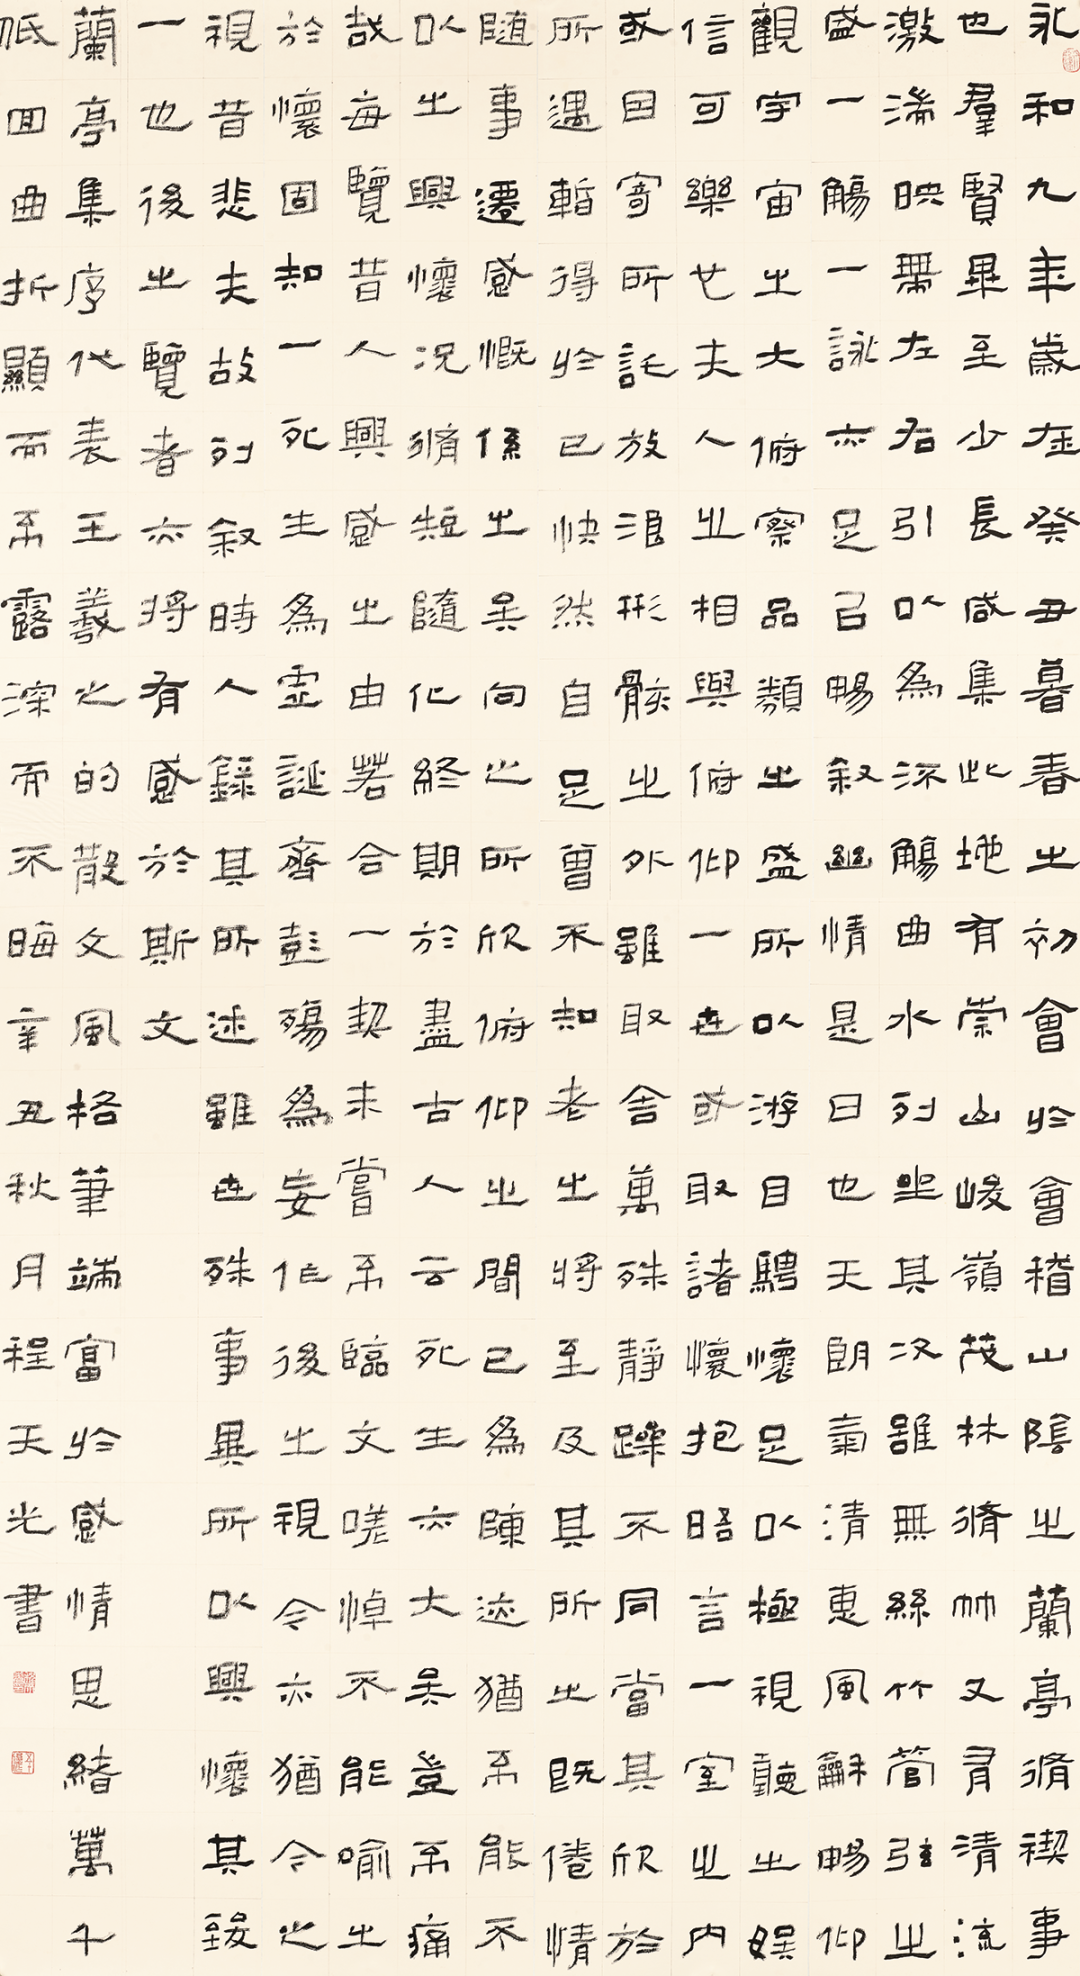 永和九年歲在癸丑暮春之初會於會稽山陰之蘭亭脩禊事
也羣賢畢至少長咸集此地有崇山峻嶺茂林脩竹又有清流
激湍映帶左右引以為流觴曲水列坐其次雖無絲竹管弦之
盛一觴一詠亦足以暢敘幽情是日也天朗氣清惠風龢暢仰
觀宇宙之大俯察品類之盛所以游目騁懷足以極視聽之娛
信可樂也夫人之相與俯仰一世或取諸懷抱晤言一室之內
或因寄所託放浪形骸之外雖取舍萬殊靜躁不同當其欣於
所遇暫得於己快然自足曾不知老之將至及其所之既倦情
隨事遷感慨係之矣向之所欣俯仰之間已為陳迹猶不能不
以之興懷況脩短隨化終期於盡古人云死生亦大矣豈不痛
哉每覽昔人興感之由若合一契未嘗不臨文嗟悼不能喻之
於懷固知一死生為虛誕齊彭殤為妄作後之視今亦猶今之
視昔悲夫故列敘時人錄其所述雖世殊事異所以興懷其致
一也後之覽者亦將有感於斯文
蘭亭集序代表王羲之的散文風格筆端富於感情思緒萬千
低回曲折顯而不露深而不晦辛丑秋月程天光書